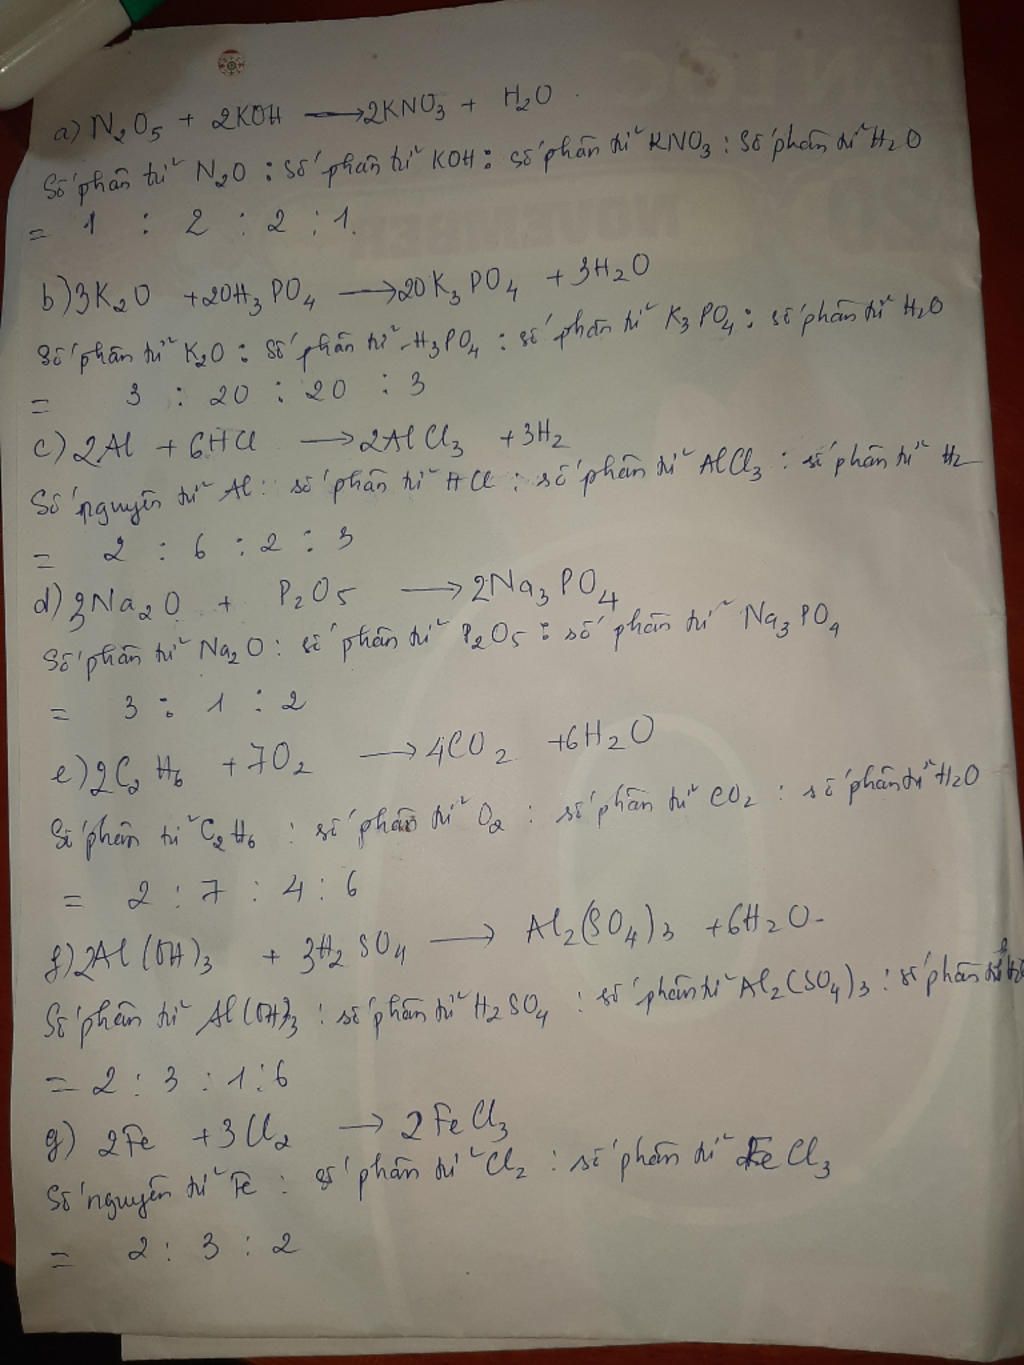 a) N2O5 + 2KOH → 2KNO3 + H2O
Số phân tử N2O : số phân tử KOH : số phân tử KNO3 : số phân tử H2O
= 1 : 2 : 2 : 1.
b) 3K2O + 20H3PO4 → 20K3PO4 + 3H2O
Số phân tử K2O : số phân tử H3PO4 : số phân tử K3PO4 : số phân tử H2O
= 3 : 20 : 20 : 3
c) 2Al + 6HCl → 2AlCl3 + 3H2
Số nguyên tử Al : số phân tử HCl : số phân tử AlCl3 : số phân tử H2
= 2 : 6 : 2 : 3
d) 3Na2O + P2O5 → 2Na3PO4
Số phân tử Na2O : số phân tử P2O5 : số phân tử Na3PO4
= 3 : 1 : 2
e) 2C2H6 + 7O2 → 4CO2 + 6H2O
Số phân tử C2H6 : số phân tử O2 : số phân tử CO2 : số phân tử H2O
= 2 : 7 : 4 : 6
f) 2Al(OH)3 + 3H2SO4 → Al2(SO4)3 + 6H2O
Số phân tử Al(OH)3 : số phân tử H2SO4 : số phân tử Al2(SO4)3 : số phân tử
= 2 : 3 : 1 : 6
g) 2Fe + 3Cl2 → 2FeCl3
Số nguyên tử Fe : số phân tử Cl2 : số phân tử FeCl3
= 2 : 3 : 2